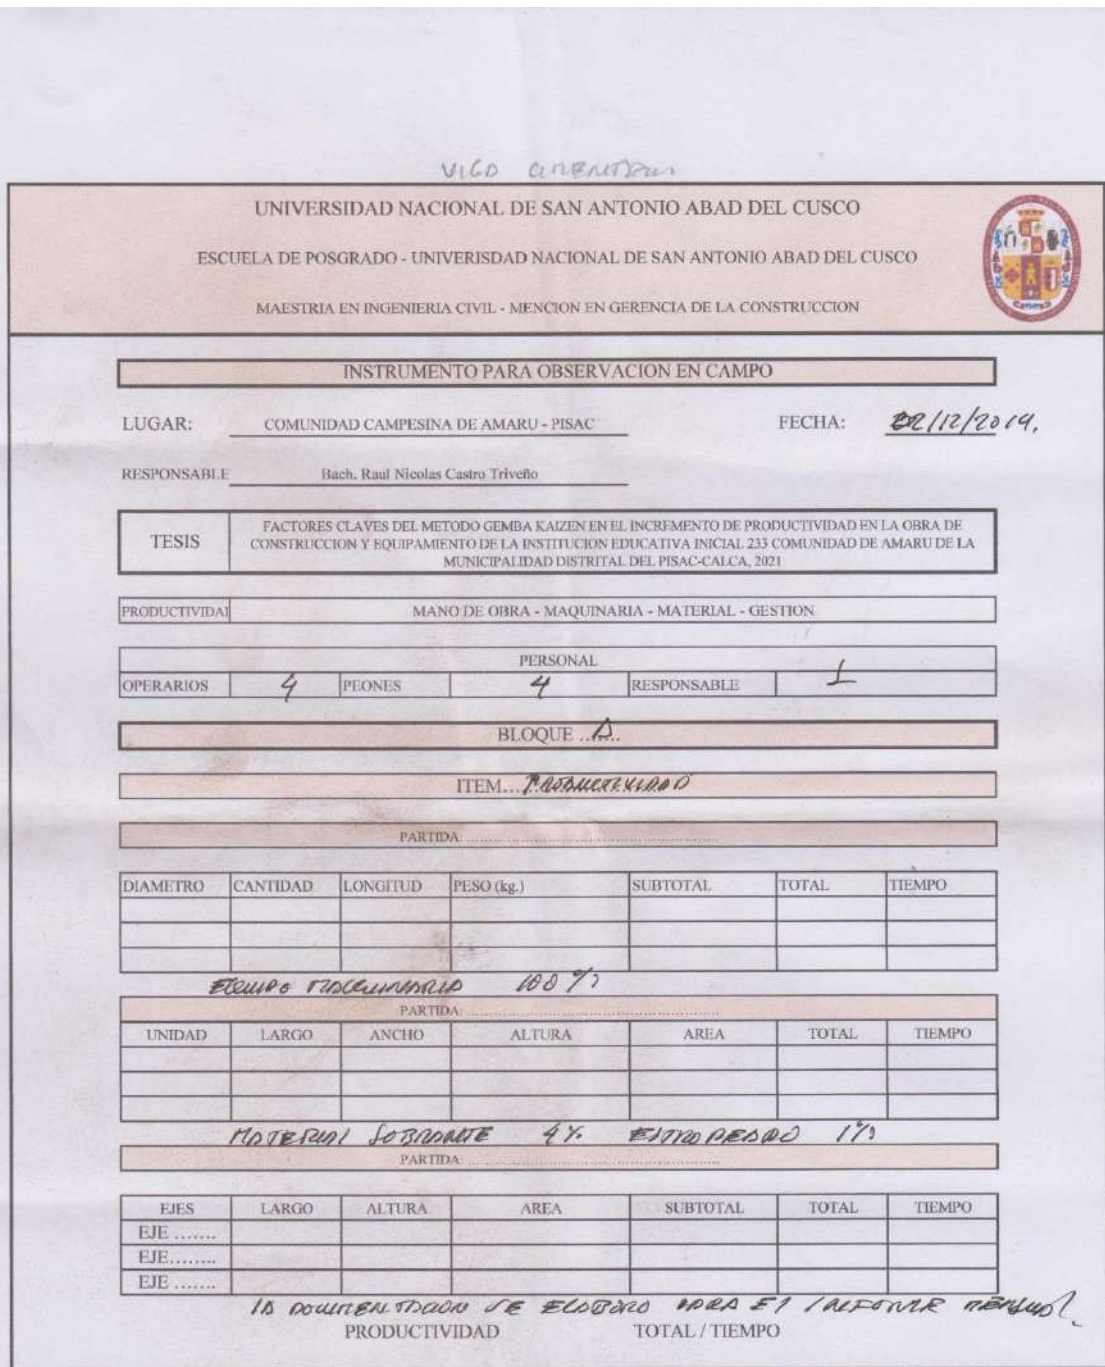 VIGA CIMENTACION
UNIVERSIDAD NACIONAL DE SAN ANTONIO ABAD DEL CUSCO
ESCUELA DE POSGRADO - UNIVERISDAD NACIONAL DE SAN ANTONIO ABAD DEL CUSCO
MAESTRIA EN INGENIERIA CIVIL - MENCION EN GERENCIA DE LA CONSTRUCCION
INSTRUMENTO PARA OBSERVACION EN CAMPO
LUGAR: COMUNIDAD CAMPESINA DE AMARU - PISAC FECHA: 22/12/2019.
RESPONSABLE Bach. Raul Nicolas Castro Triveño
TESIS FACTORES CLAVES DEL METODO GEMBA KAIZEN EN EL INCREMENTO DE PRODUCTIVIDAD EN LA OBRA DE
CONSTRUCCION Y EQUIPAMIENTO DE LA INSTITUCION EDUCATIVA INICIAL 233 COMUNIDAD DE AMARU DE LA
MUNICIPALIDAD DISTRITAL DEL PISAC-CALCA, 2021
PRODUCTIVIDAI MANO DE OBRA - MAQUINARIA - MATERIAL - GESTION
PERSONAL
OPERARIOS 4 PEONES 4 RESPONSABLE 1
BLOQUE .......
ITEM... PRODUCTIVIDAD
PARTIDA: ........................................................
DIAMETRO CANTIDAD LONGITUD PESO (kg.) SUBTOTAL TOTAL TIEMPO
EQUIPO MAQUINARIA 100 %
PARTIDA: ........................................................
UNIDAD LARGO ANCHO ALTURA AREA TOTAL TIEMPO
MATERIAL SOBRANTE 4% ESTROPEADO 1%
PARTIDA: ........................................................
EJES LARGO ALTURA AREA SUBTOTAL TOTAL TIEMPO
EJE .......
EJE........
EJE .......
LA DOCUMENTACION SE ELABORO PARA EL INFORME MENSUAL.
PRODUCTIVIDAD TOTAL / TIEMPO